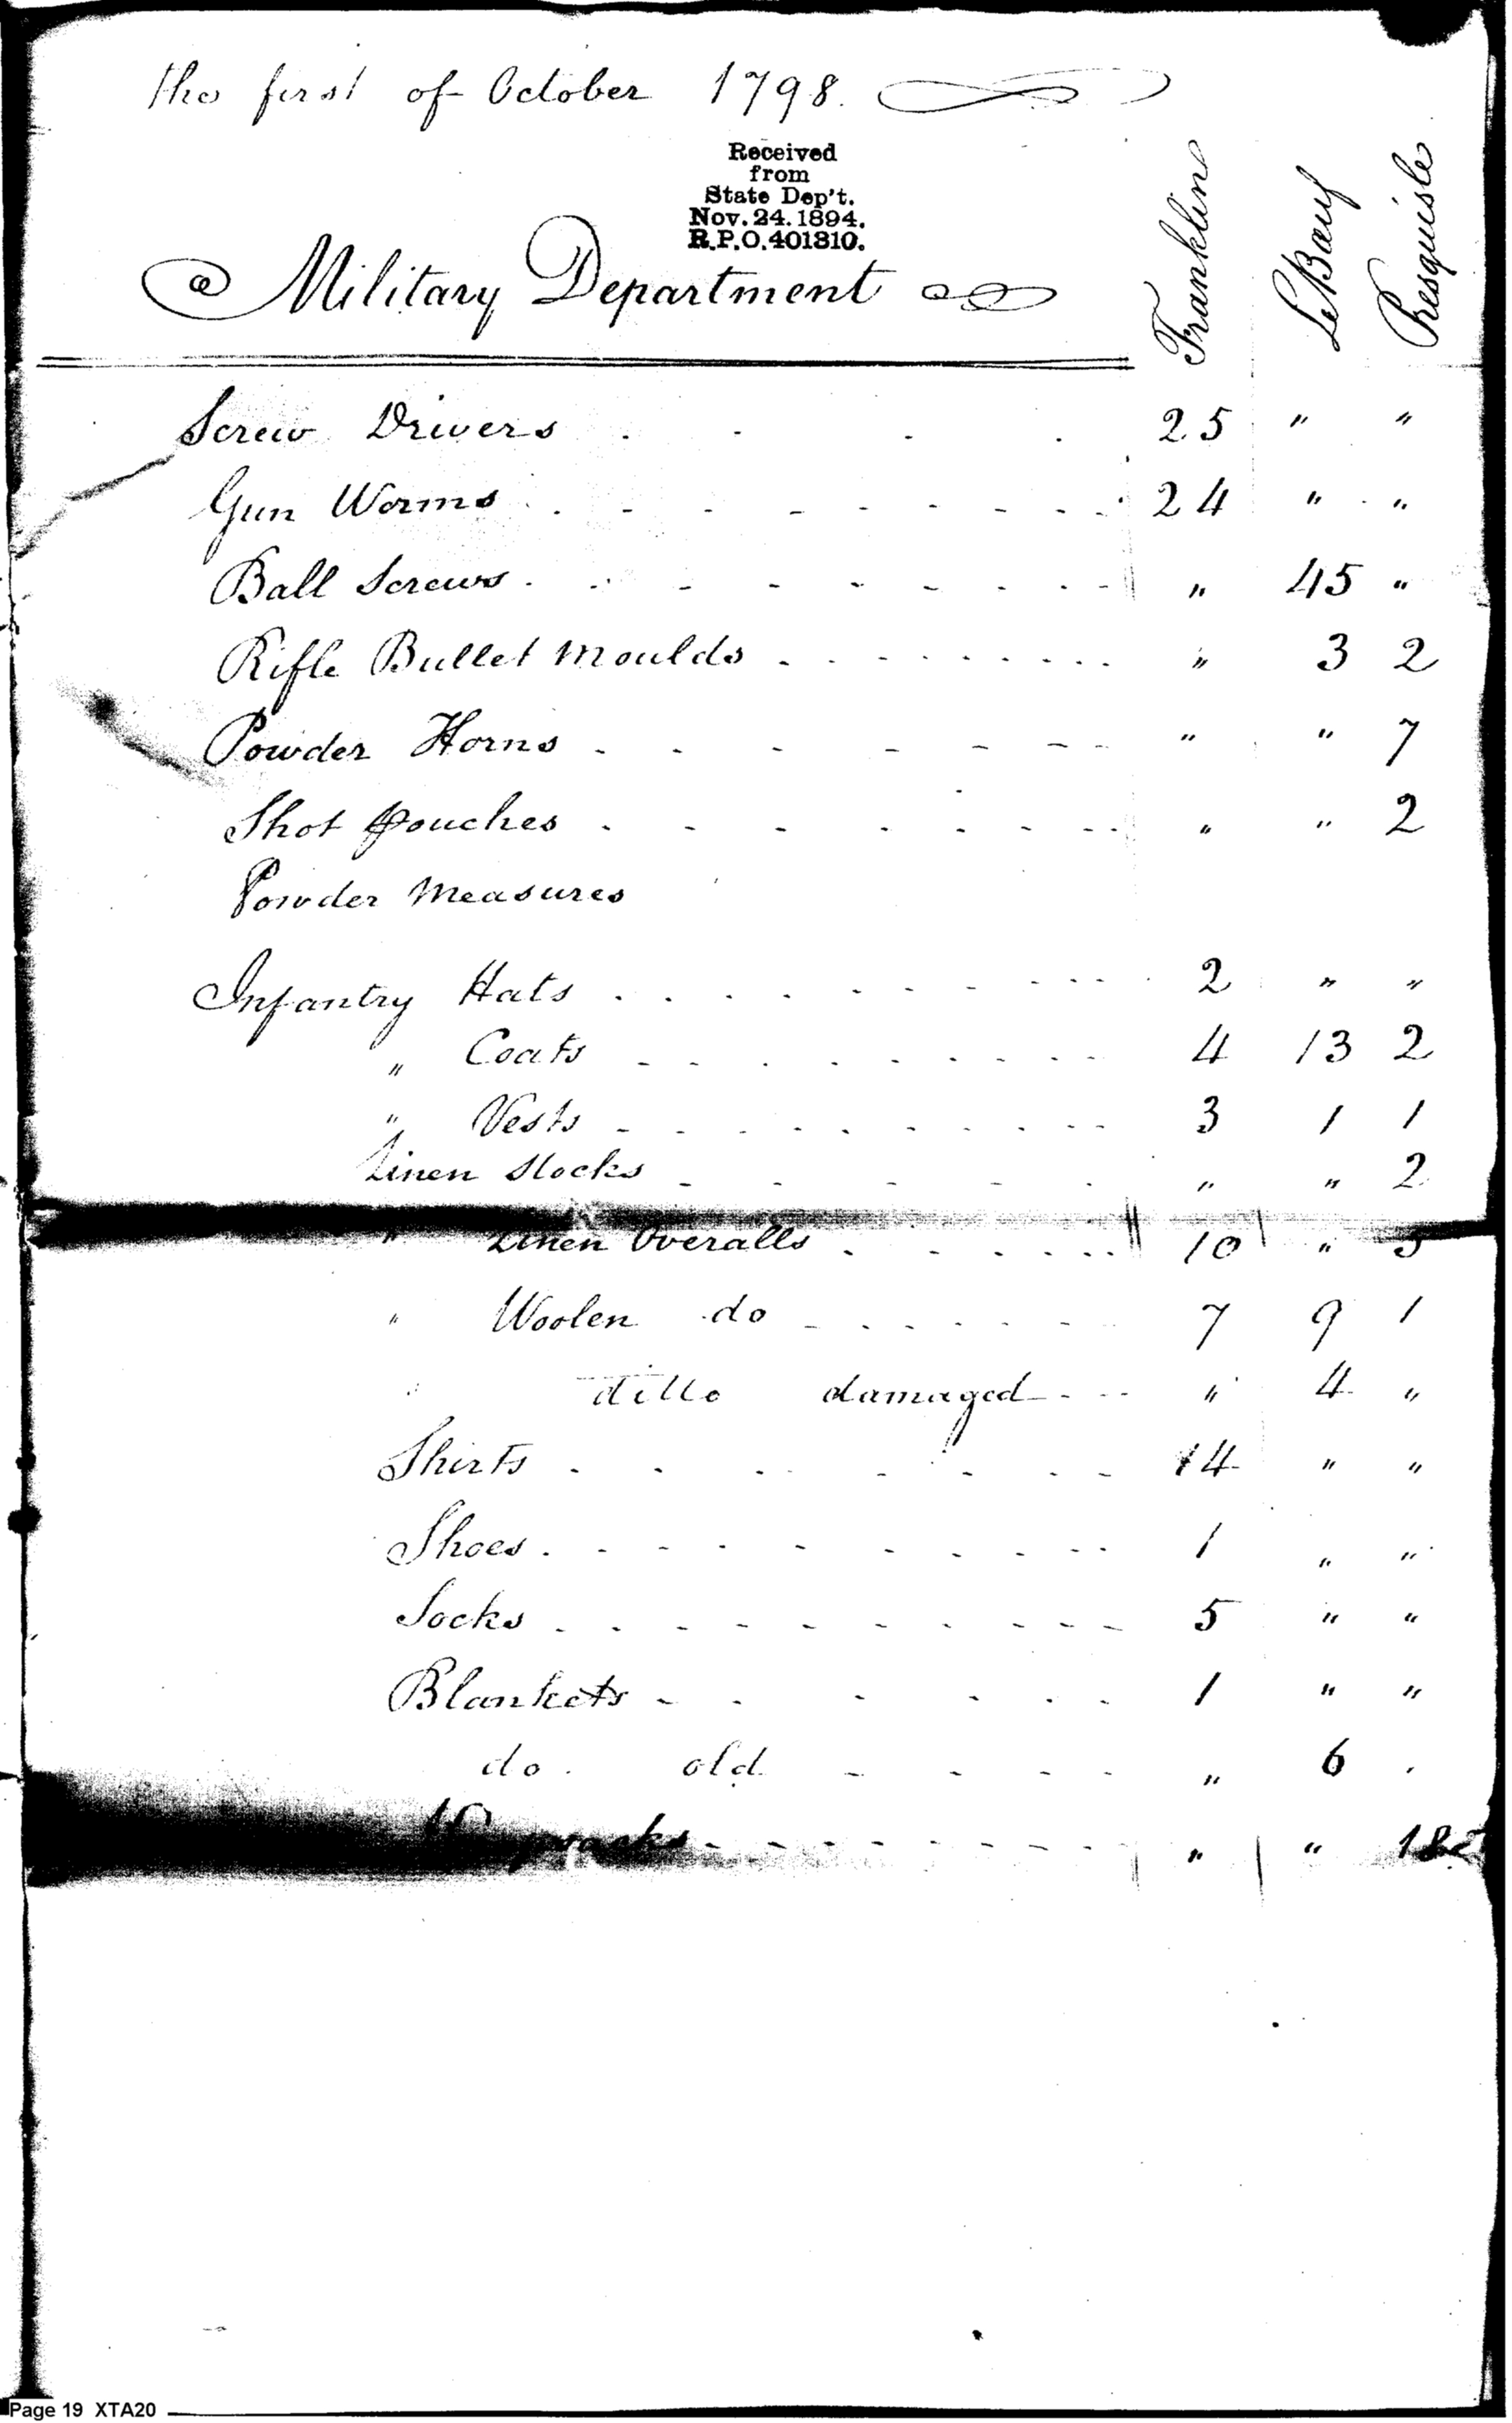 the first of October 1798.
Received
from
State Dep't.
Nov. 24. 1894.
R.P.O. 401810.
Military Department
Franklin LeBœuf Presquisle
Screw Drivers . . . . 25 " "
Gun Worms . . - - - - - - - - 24 " "
Ball Screws . . - - - - - - - " 45 "
Rifle Bullet Moulds . . . . . . . . . " 3 2
Powder Horns - - - - - - - " " 7
Shot pouches . - - - - - - - " " 2
Powder Measures
Infantry Hats . . . . - - - - - - 2 " "
" Coats - - - - - - - - - 4 13 2
" Vests - - - - - - - - - - 3 1 1
Linen Stocks - - - - - " " 2
" Linen Overalls . . . . . . 10 "
" Woolen do - - - - - - 7 9 1
" ditto damaged - - - " 4 "
Shirts . . . - - - - 14 " "
Shoes . - - - - - - - - - 1 " "
Socks . . - - - - - - - - 5 " "
Blankets - - - - - - 1 " "
do. old - - - - " 6 .
- - - - - - - - " "
Page 19 XTA20